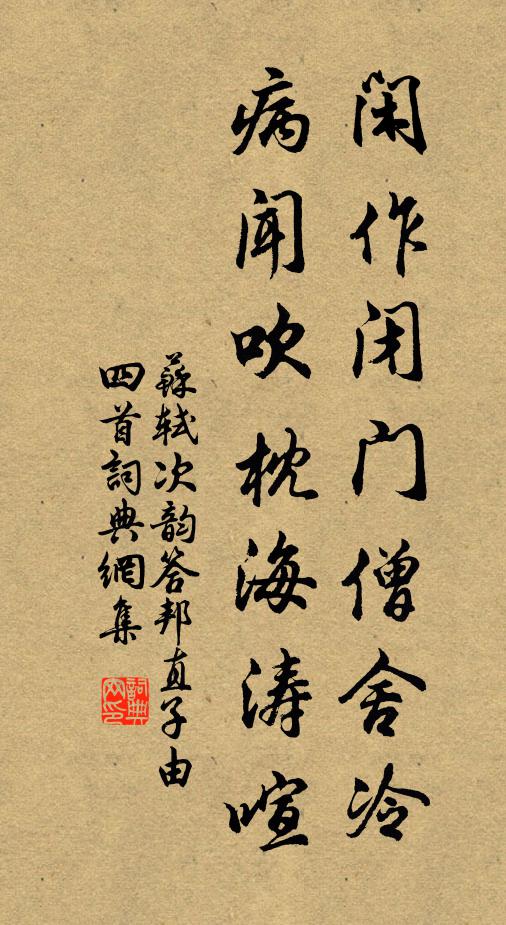 闲作闭门僧舍冷
病闻吹枕海涛喧
蘇軾次韵答邦直子由
四首詞典網集
詞典
网印